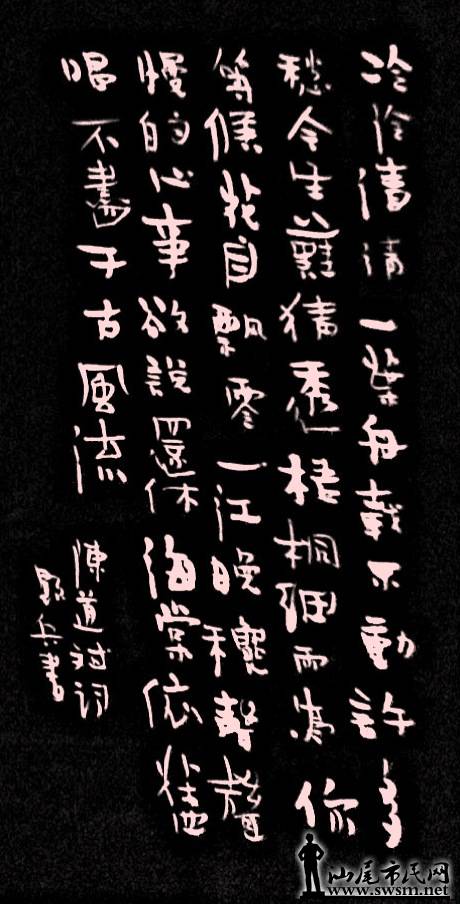 冷冷清清一葉舟載不動許多
愁今生難猜透梧桐細雨寫你
等候花自飄零一江晚穐聲聲
慢的心事欲說還休海棠依舊
唱不盡千古風流
陳道斌詞
兵書
汕尾市民网
www.swsm.net